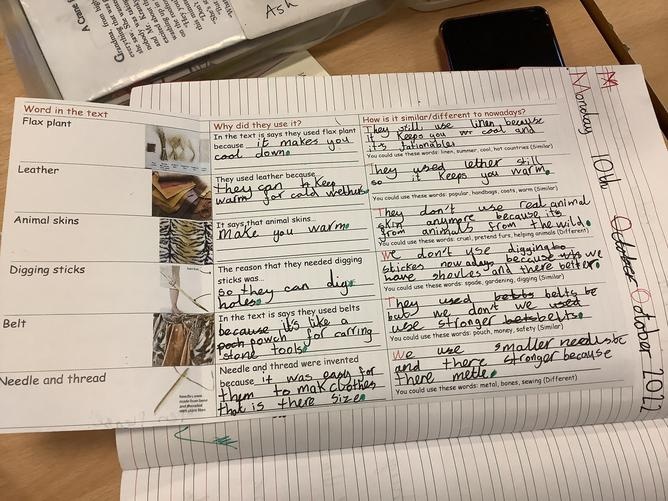 Ash
A Crane
Grandma,
Monday 10th October October 2022
Word in the text
Why did they use it?
How is it similar/different to nowadays?
Flax plant
In the text is says they used flax plant
because it makes you
cool down.
They still use linen because
it keeps you cool and
it's fationables
You could use these words: linen, summer, cool, hot countries (Similar)
Leather
They used leather because...
they can to keep
warm for cold wethers
They used lether still
so it keeps you warm.
You could use these words: popular, handbags, coats, warm (Similar)
Animal skins
It says that animal skins...
make you warm.
They don't use real animal
skin anymore because its
from animals from the wild.
You could use these words: cruel, pretend furs, helping animals (Different)
Digging sticks
The reason that they needed digging
sticks was...
so they can dig
holes.
We don't use digging
stickes nowadays because we
have shovles and there better.
You could use these words: spade, gardening, digging (Similar)
Belt
In the text is says they used belts
because it's like a
poch powch for carring
stone tools.
They used belts belts
but we don't we used
wese stronger bets belts.
You could use these words: pouch, money, safety (Similar)
Needle and thread
Needles were
made from bone
Needle and thread were invented
because it was easy for
them to mak clothes
that is there size.
We use smaller
and there stronger because
there metle.
You could use these words: metal, bones, sewing (Different)